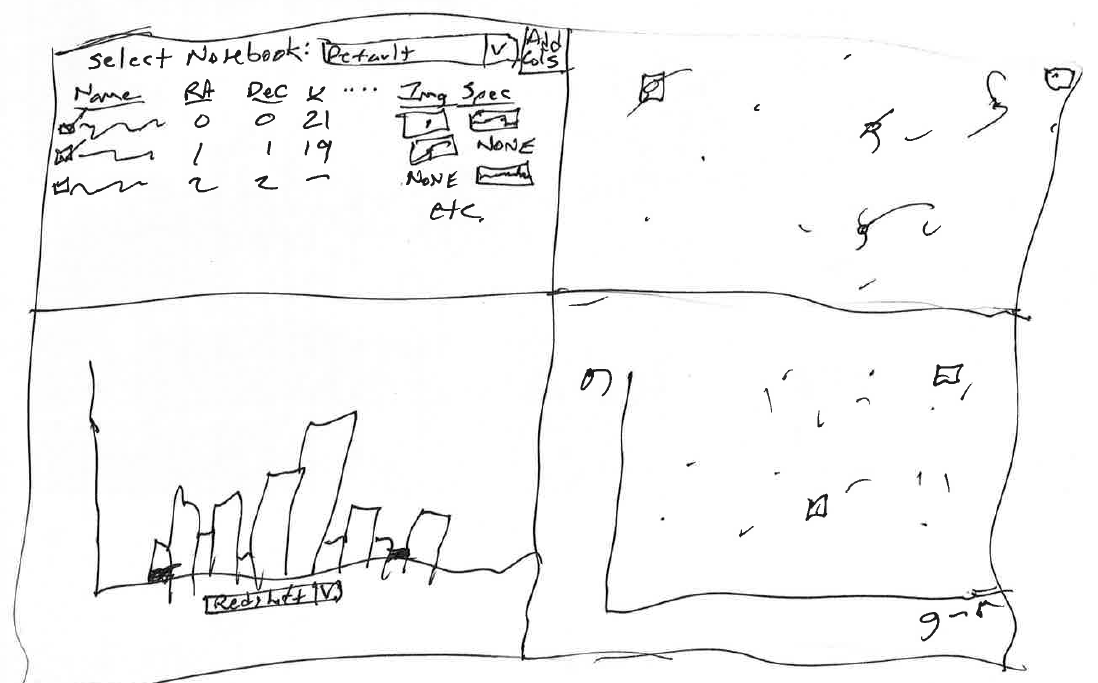 Select Notebook: Default V Add Cols
Name RA Dec .... Img Spec
0 0 21
1 1 19 NONE
2 2 — NONE
etc.
Redshift V
g
g-r